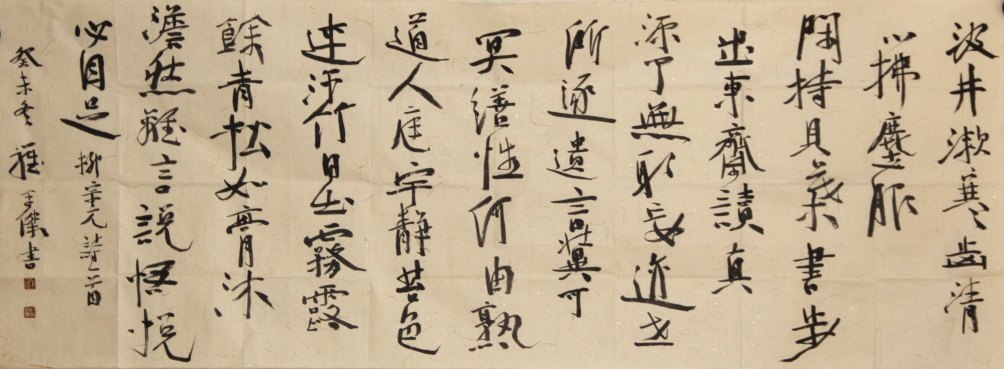 汲井漱寒齒清
心拂塵服
閑持貝葉書步
出東齋讀真
源了無取妄迹世
所逐遺言冀可
冥繕性何由熟
道人庭宇靜苔色
連深竹日出霧露
餘青松如膏沐
澹然離言說悟悅
心自足 柳宗元詩一首
癸未冬 傑書